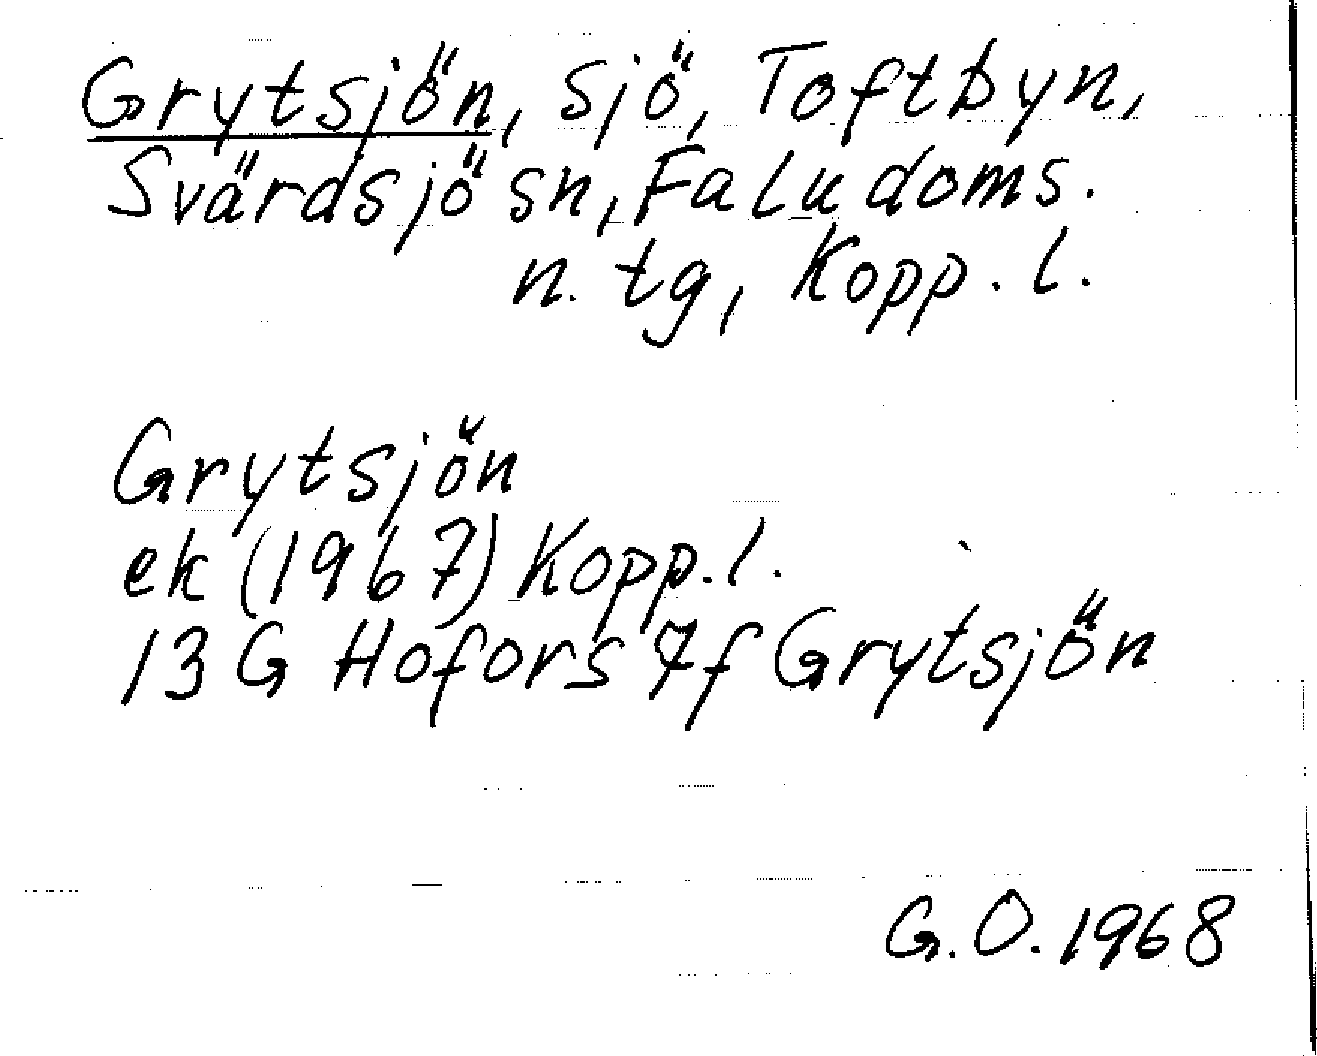 Grytsjön, Sjö, Toftbyn,
Svärdsjö sn, Falu doms.
n. tg, Kopp. l.
Grytsjön
ek (1967) Kopp. l.
13 G Hofors 7f Grytsjön
G. O. 1968